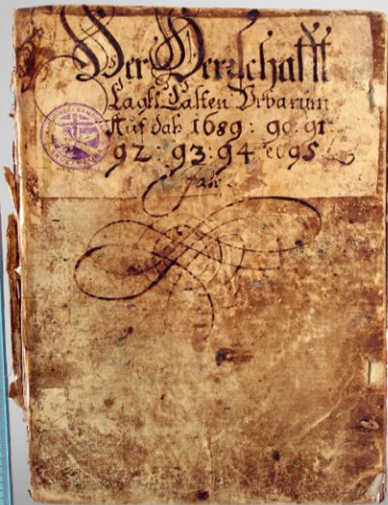 Der Herrschafft
Casten Vrbarium
Auf daß 1689: 90: 91:
92: 93: 94 et 95
Jar.